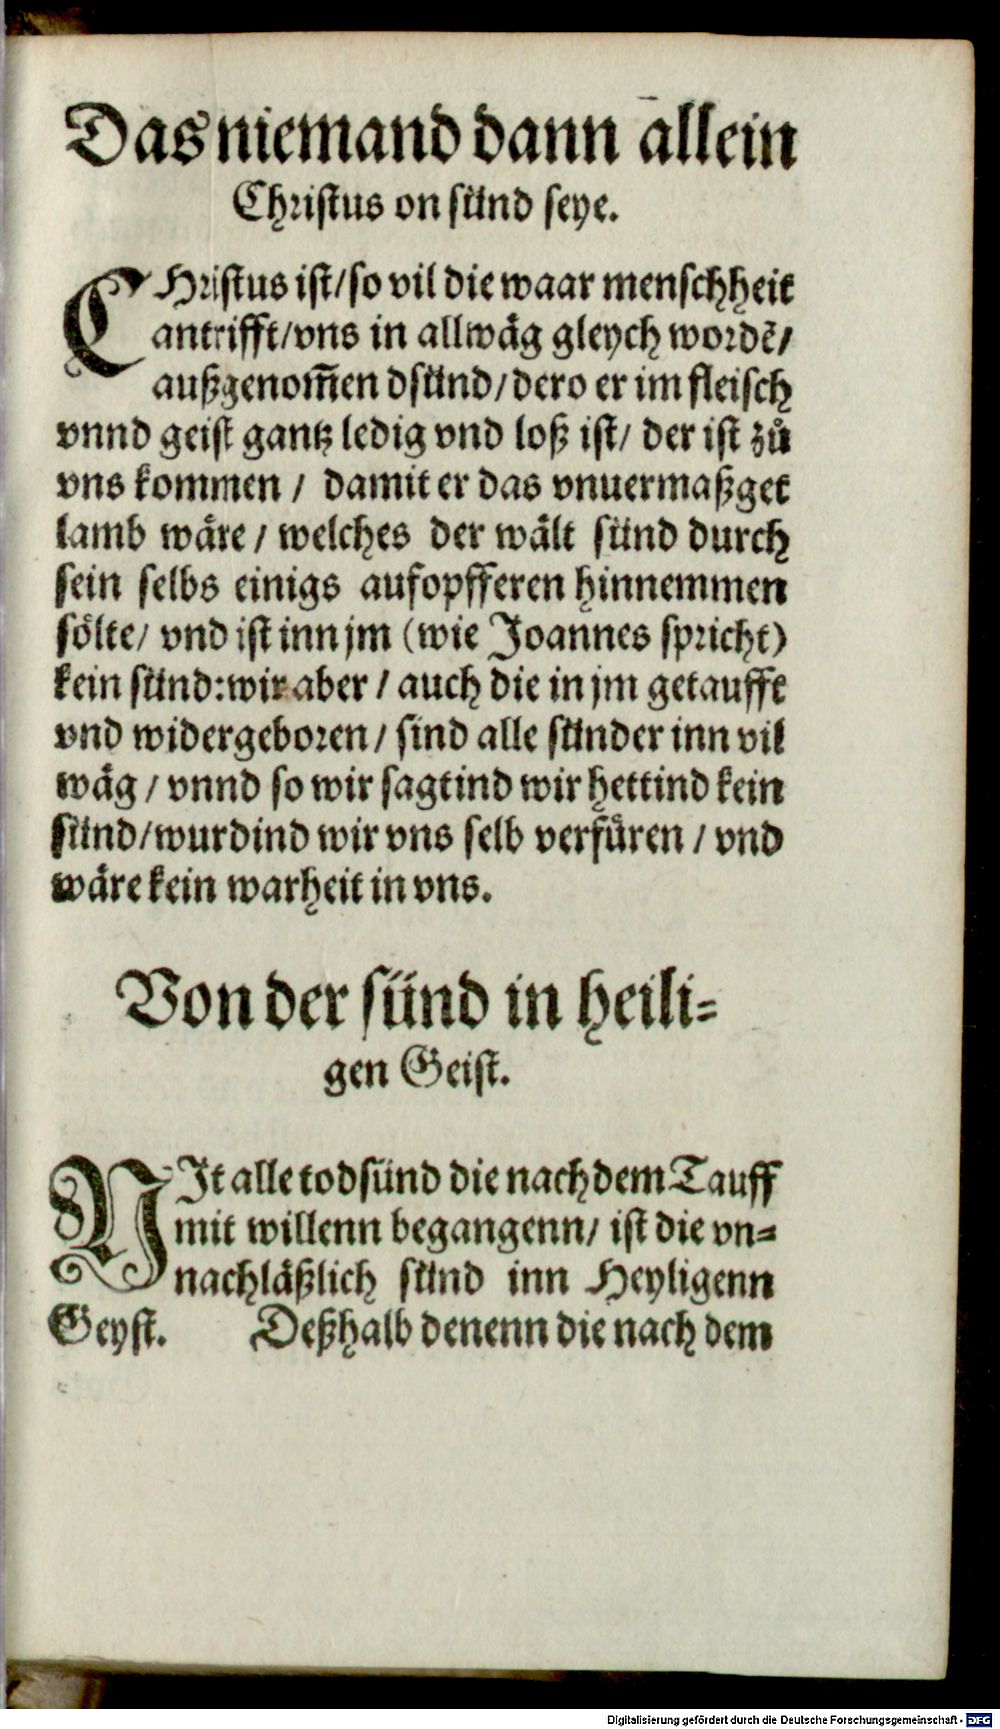 Das niemand dann allein
Christus on sünd seye.
CHristus ist/so vil die waar menschheit
antrifft/vns in allwäg gleych wordẽ/
außgenom̃en dsünd/dero er im fleisch
vnnd geist gantz ledig vnd loß ist/ der ist zů
vns kommen / damit er das vnuermaßget
lamb wäre / welches der wält sünd durch
sein selbs einigs aufopfferen hinnemmen
sölte/ vnd ist inn jm (wie Joannes spricht)
kein sünd:wir aber / auch die in jm getaufft
vnd widergeboren / sind alle sünder inn vil
wäg / vnnd so wir sagtind wir hettind kein
sünd/wurdind wir vns selb verfüren / vnd
wäre kein warheit in vns.
Von der sünd in heili=
gen Geist.
NIt alle todsünd die nach dem Tauff
mit willenn begangenn/ ist die vn=
nachläßlich sünd inn Heyligenn
Geyst. Deßhalb denenn die nach dem
Digitalisierung gefördert durch die Deutsche Forschungsgemeinschaft - DFG